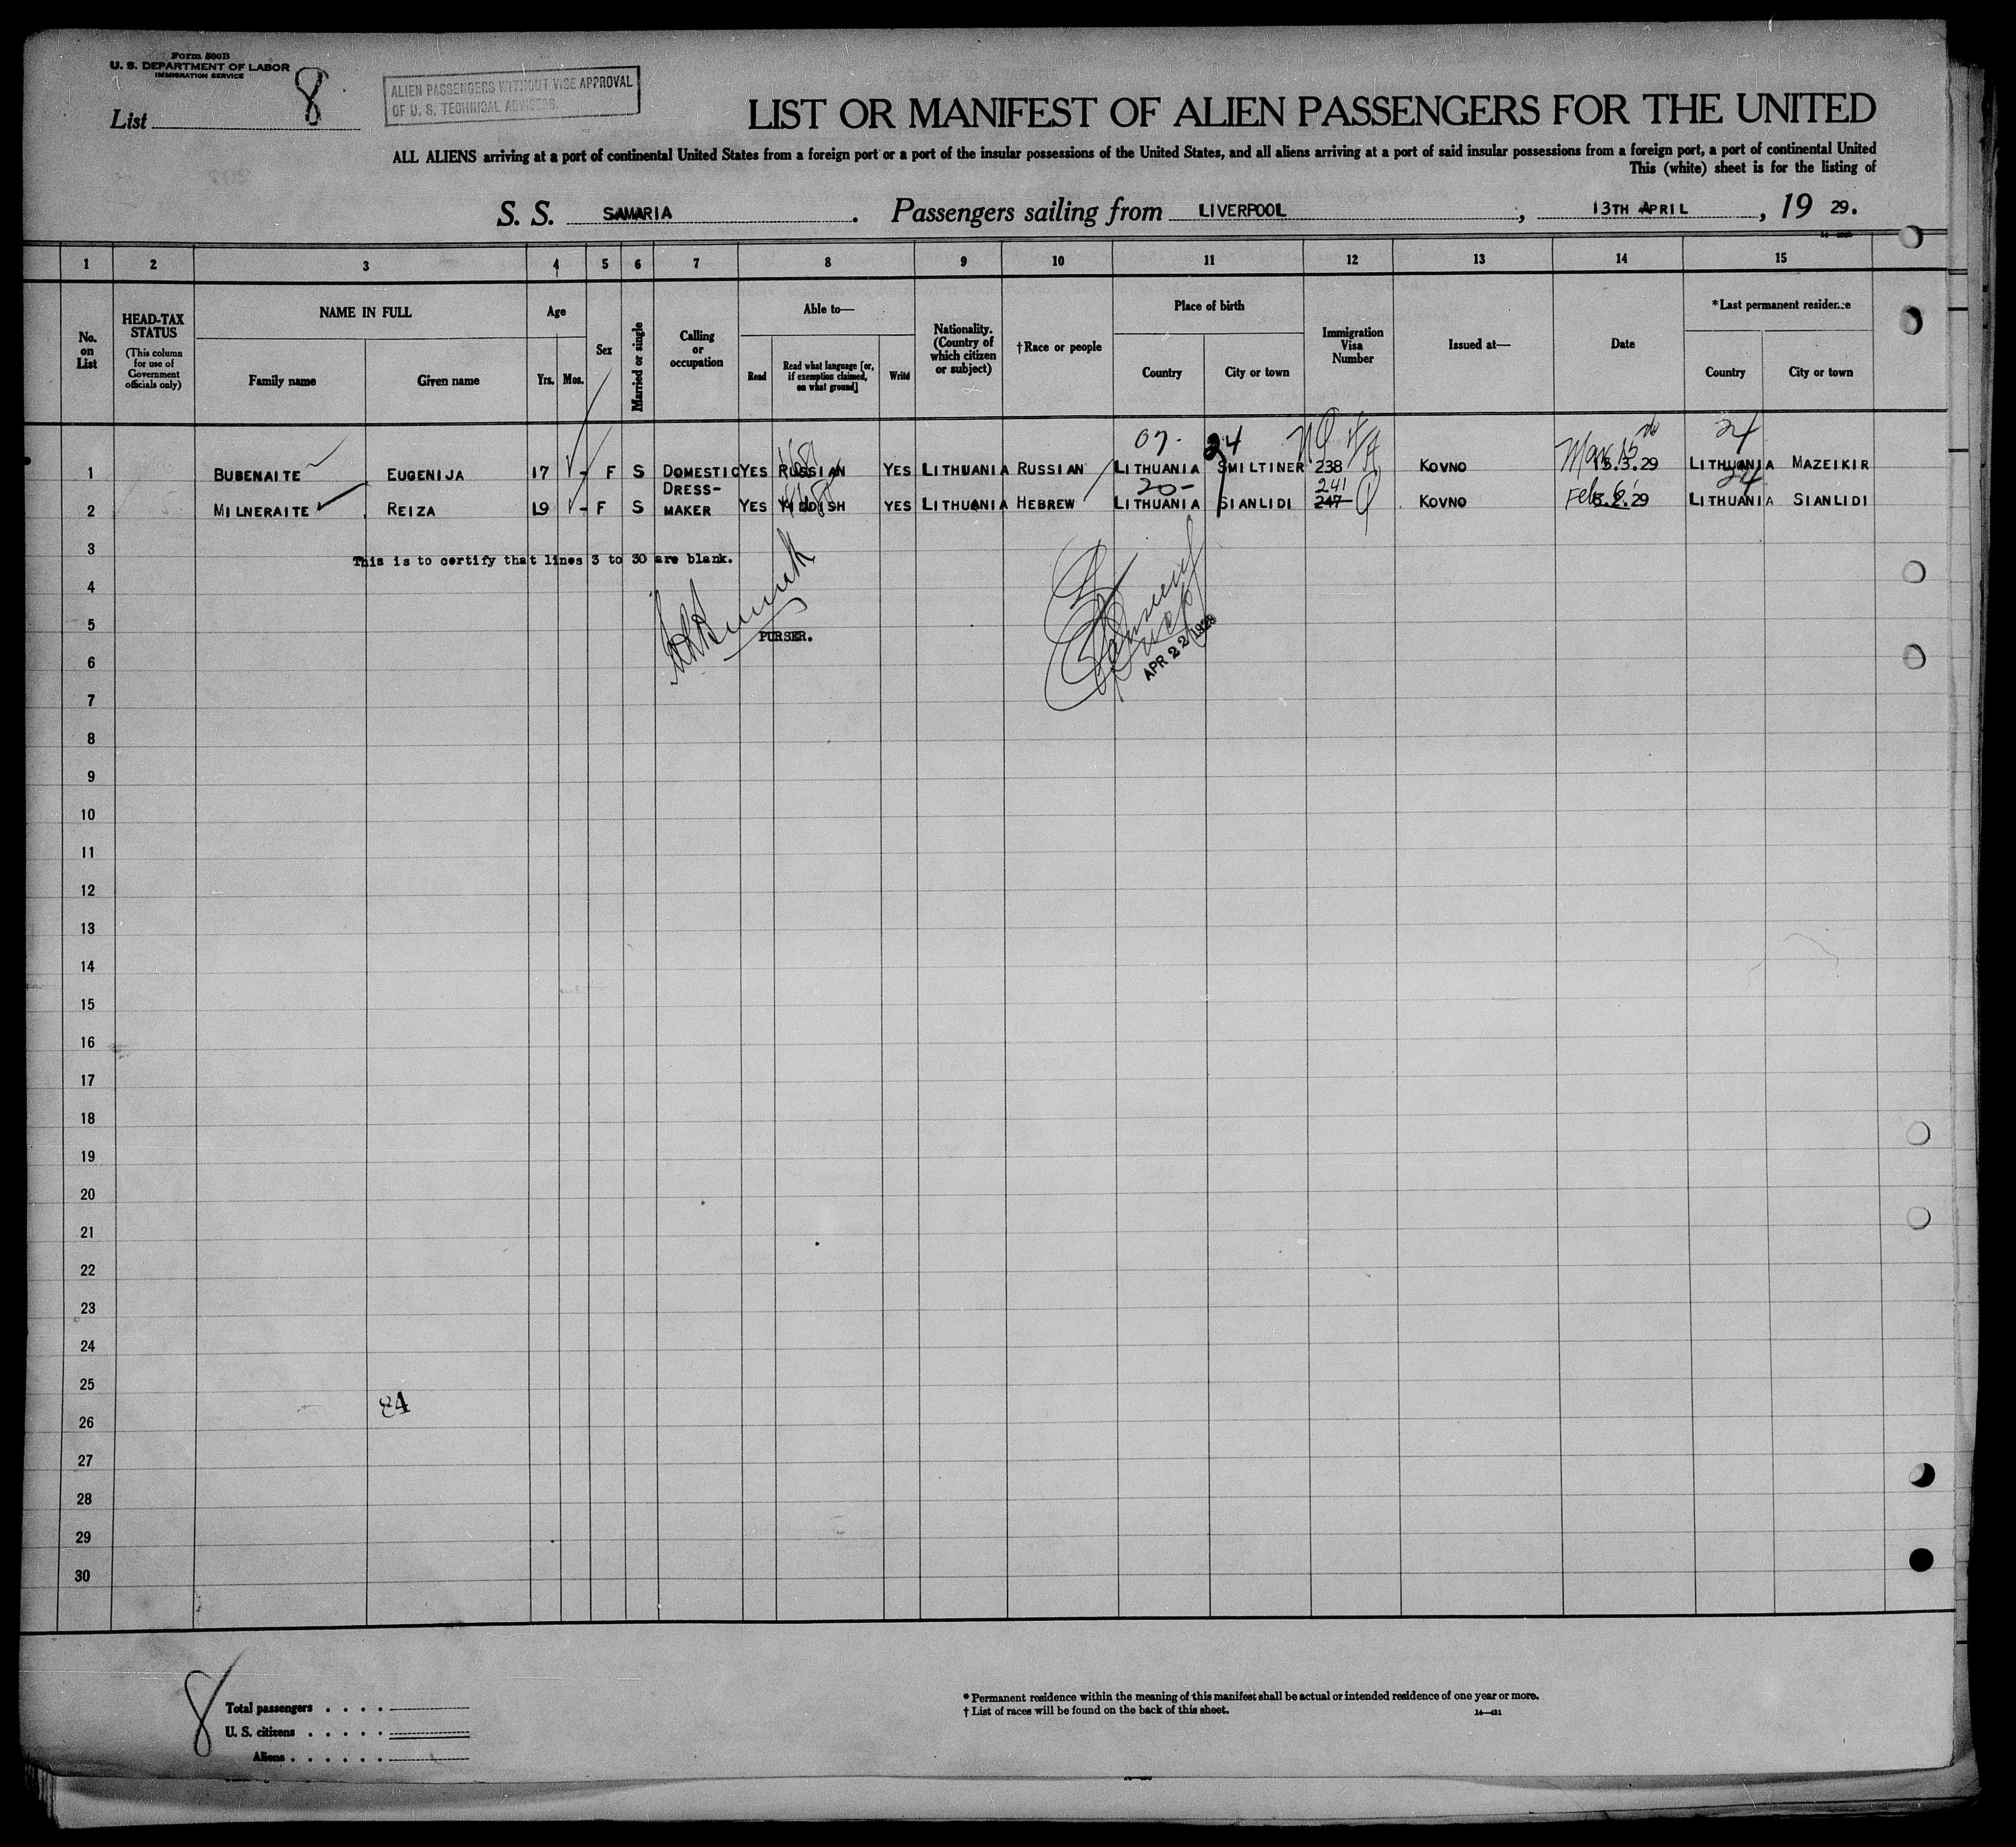 Form 500B
U. S. DEPARTMENT OF LABOR
IMMIGRATION SERVICE
List 8
ALIEN PASSENGERS WITHOUT VISE APPROVAL
OF U. S. TECHNICAL ADVISERS.
LIST OR MANIFEST OF ALIEN PASSENGERS FOR THE UNITED
ALL ALIENS arriving at a port of continental United States from a foreign port or a port of the insular possessions of the United States, and all aliens arriving at a port of said insular possessions from a foreign port, a port of continental United
This (white) sheet is for the listing of
S. S. SAMARIA. Passengers sailing from LIVERPOOL, 13TH APRIL, 19 29.
1 2 3 4 5 6 7 8 9 10 11 12 13 14 15
No. on List
HEAD-TAX STATUS
(This column for use of Government officials only)
NAME IN FULL
Family name
Given name
Age
Yrs. Mos.
Sex
Married or single
Calling or occupation
Able to—
Read
Read what language [or, if exemption claimed, on what ground]
Write
Nationality. (Country of which citizen or subject)
†Race or people
Place of birth
Country
City or town
Immigration Visa Number
Issued at—
Date
*Last permanent residence
Country
City or town
07- 24 Mar 15 24
1 BUBENAITE EUGENIJA 17 - F S DOMESTIC YES RUSSIAN YES LITHUANIA RUSSIAN LITHUANIA SMILTINER 238 KOVNO 15.3.29 LITHUANIA MAZEIKIR
20- 241 Feb. 6 24
2 MILNERAITE REIZA 19 - F S DRESS-MAKER YES YIDDISH YES LITHUANIA HEBREW LITHUANIA SIANLIDI 247 KOVNO .2.29 LITHUANIA SIANLIDI
3
This is to certify that lines 3 to 30 are blank.
4
5
PURSER.
APR 22 1929
6
7
8
9
10
11
12
13
14
15
16
17
18
19
20
21
22
23
24
25
84
26
27
28
29
30
8
Total passengers
U. S. citizens
Aliens
* Permanent residence within the meaning of this manifest shall be actual or intended residence of one year or more.
† List of races will be found on the back of this sheet.
14—431